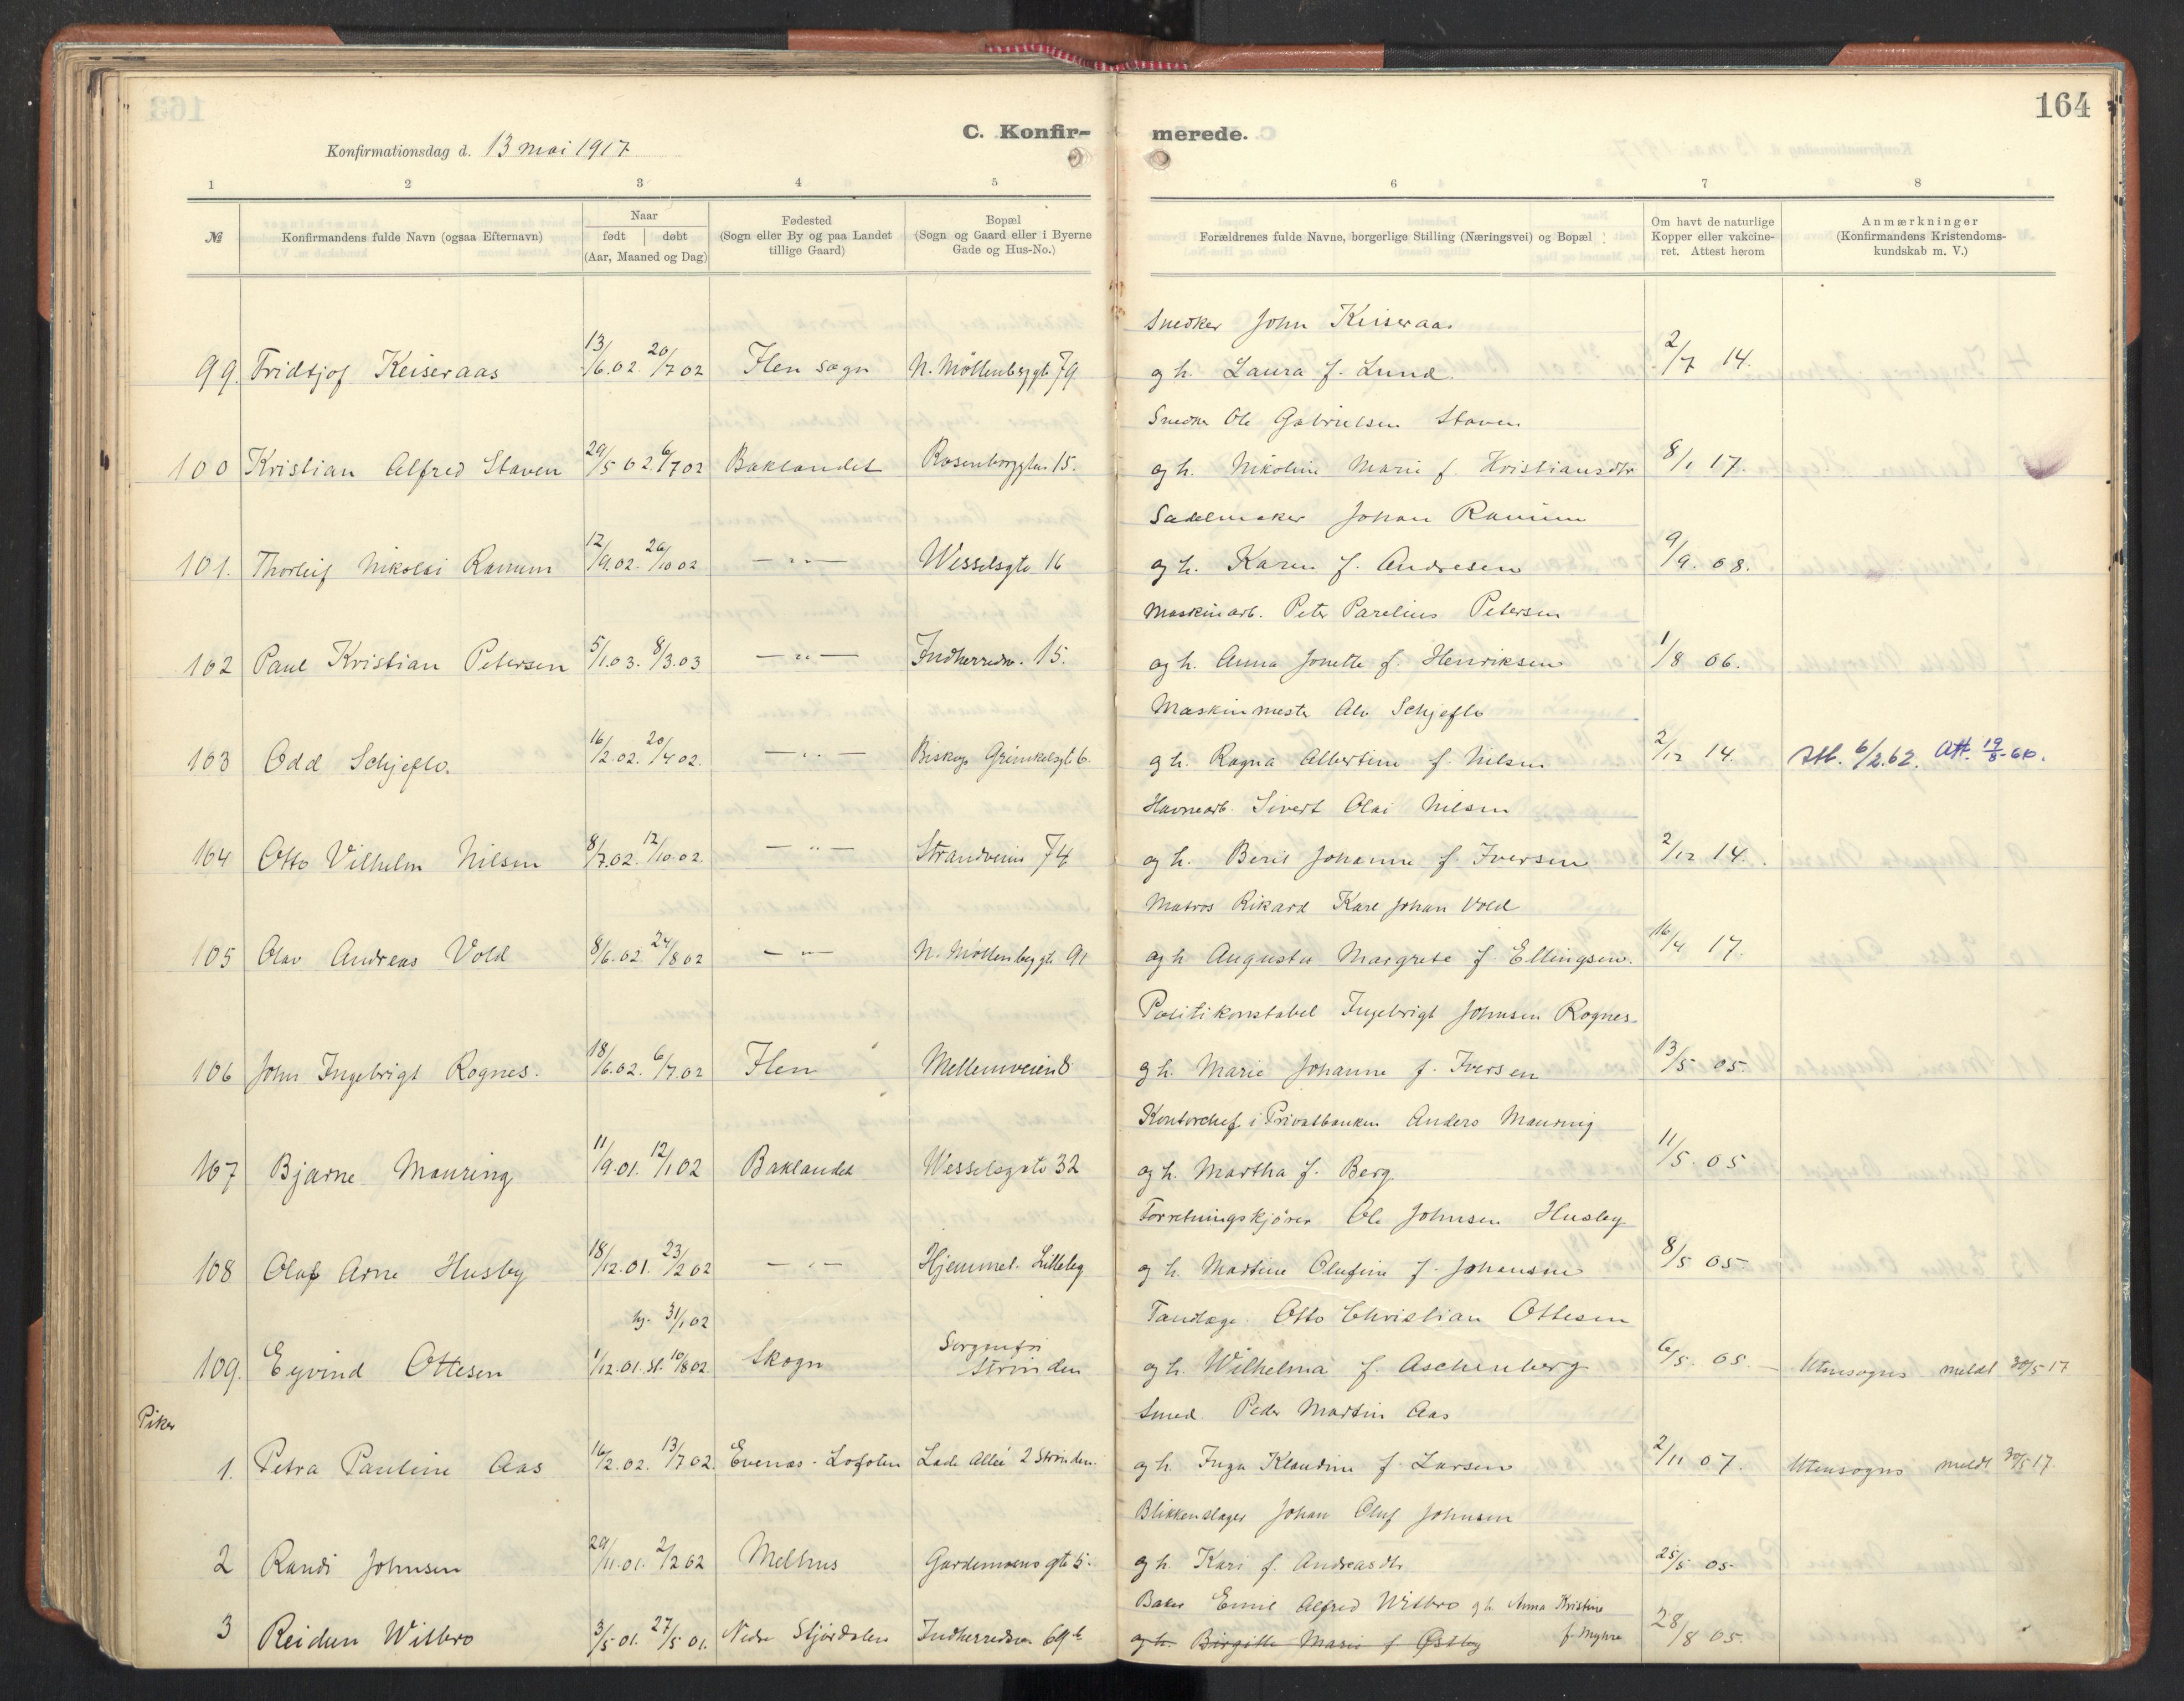 164
C. Konfir-
merede.
Konfirmationsdag d. 13 mai 1917
1 2 3 4 5 6 7 8
№
Konfirmandens fulde Navn (ogsaa Efternavn)
Naar
født | døbt
(Aar, Maaned og Dag)
Fødested
(Sogn eller By og paa Landet
tillige Gaard)
Bopæl
(Sogn og Gaard eller i Byerne
Gade og Hus-No.)
Forældrenes fulde Navne, borgerlige Stilling (Næringsvei) og Bopæl
Om havt de naturlige
Kopper eller vakcine-
ret. Attest herom
Anmærkninger
(Konfirmandens Kristendoms-
kundskab m. V.)
Snedker John Keiseraas
99. Fridtjof Keiseraas 13/6.02. 20/7 02 Ilen sogn N. Møllenberggt 79 g h. Laura f. Lund. 2/7 14.
Snedker Ole Gabrielsen Staven
100 Kristian Alfred Staven 29/5 02. 6/7 02 Baklandet Rosenborggten 15. og h. Nikoline Marie f. Kristiansdtr 8/1 17.
Sadelmaker Johan Ranum
101. Thorleif Nikolai Ranum 12/9.02. 26/10 02 —"— Wesselsgte 16 og h. Karen f. Andresen 9/9. 08.
Maskinarb. Peter Parelius Petersen
102 Paul Kristian Petersen 5/1.03. 8/3.03 —"— Indherredsv. 15. og h. Anna Jonette f. Henriksen 1/8 06.
Maskinmester Alv Schjeflo
103 Odd Schjeflo. 16/2.02. 20/4 02. —"— Biskop Grimkelsgt 6. g h. Ragna Albertine f. Nilsen 2/12 14. Att. 6/2.62. Att. 19/8-60.
Havnearb. Sivert Olai Nilsen
104 Otto Vilhelm Nilsen 8/7.02. 12/10.02. —"— Strandveien 74 og h. Berit Johanne f. Iversen 2/12 14.
Matros Rikard Karl Johan Vold
105 Olav Andreas Vold 8/6.02 24/8 02 —"— N. Møllenberggt 91 og h. Augusta Margrete f. Ellingsen. 16/4 17.
Politikonstabel Ingebrigt Johnsen Rognes
106 John Ingebrigt Rognes. 18/6.02. 6/7.02 Ilen Mellemveien 8 g h. Marie Johanne f. Iversen 13/5 05.
Kontorchef i Privatbanken Anders Mauring
107 Bjarne Mauring 11/9.01. 12/1 02 Baklandet Wesselsgate 32 og h. Martha f. Berg 11/5. 05
Forretningskjører Ole Johnsen Husby
108 Olaf Arne Husby 18/12.01. 23/2 02 —"— Hjemmet. Lilleby og h. Martine Olufine f. Johansen 8/5 05.
hj. 31/1 02 Tandlæge. Otto Christian Ottesen
109. Eyvind Ottesen 1/12.01. st. 10/8 02. Skogn Sorgenfri
Strinden og h. Wilhelma f. Aschenberg 6/5. 05. Utensogns meldt 30/5 17
Piker
Smed Peder Martin Aas
1. Petra Pauline Aas 16/2.02. 13/7 02. Evenas - Lofoten Lade Allé 2 Strinden. og h. Inga Klaudine f. Larsen 2/11 07. Utensogns meldt 30/5 17.
Blikkenslager Johan Oluf Johnsen
2 Randi Johnsen 29/11.01. 2/2 02 Melhus Gardemoens gt 5. g h. Kari f. Andreasdtr 25/5 05
Baker Emil Alfred Witbro g h Anna Kristine
f. Myhre
3 Reidun Witbro 3/5 01. 27/5 01. Nedre Stjørdalen Indherredsvn 69 b og h. Birgitte Marie f Østby 28/8 05.